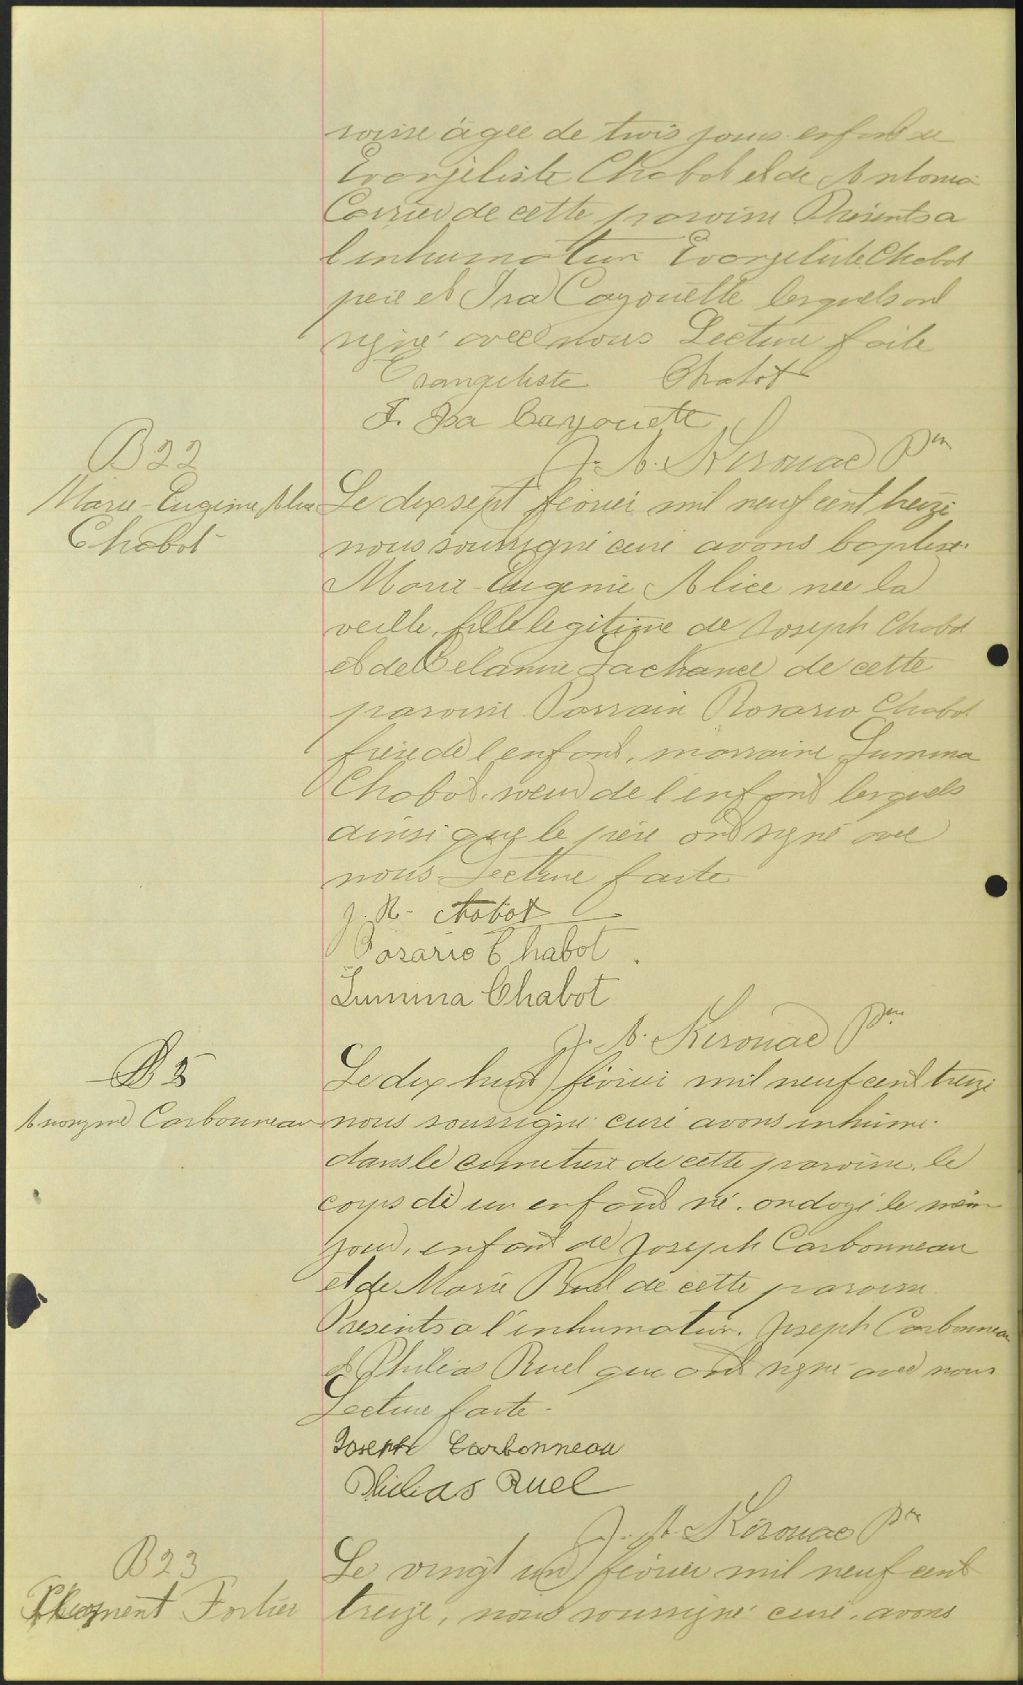 roisse âgée de trois jours enfant de
Evangéliste Chabot et de Antonia
Carrier de cette paroisse Présents a
l'inhumation Evangéliste Chabot
père et Ira Cayouette lesquels ont
signé avec nous Lecture faite
Evangeliste Chabot
J. Ira Cayouette
J. A. Kirouac Ptre
B 22
Marie-Eugénie, Alice
Chabot
Le dix sept février mil neuf cent treize
nous soussigné curé avons baptisé
Marie-Eugenie Alice née la
veille, fille légitime de Joseph Chabot
et de Célanire Lachance de cette
paroisse Parrain Rosario Chabot
frère de l'enfant, marraine Lumina
Chabot soeur de l'enfant lesquels
ainsi que le père ont signé avec
nous Lecture faite
J. N. Chabot
Rosario Chabot.
Lumina Chabot
J. A. Kirouac Ptre
5
Anonyme Carbonneau
Le dix huit février mil neuf cent treize
nous soussigné curé avons inhumé
dans le cimetière de cette paroisse, le
corps de un enfant né, ondoyé le même
jour, enfant de Joseph Carbonneau
et de Marie Ruel de cette paroisse
Présents a l'inhumation, Joseph Carbonneau
et Philias Ruel qui ont signé avec nous
Lecture faite.
Joseph Carbonneau
Philias Ruel
J. A. Kirouac Ptre
B 23
Fortier
Le vingt un février mil neuf cent
treize, nous soussigné curé, avons